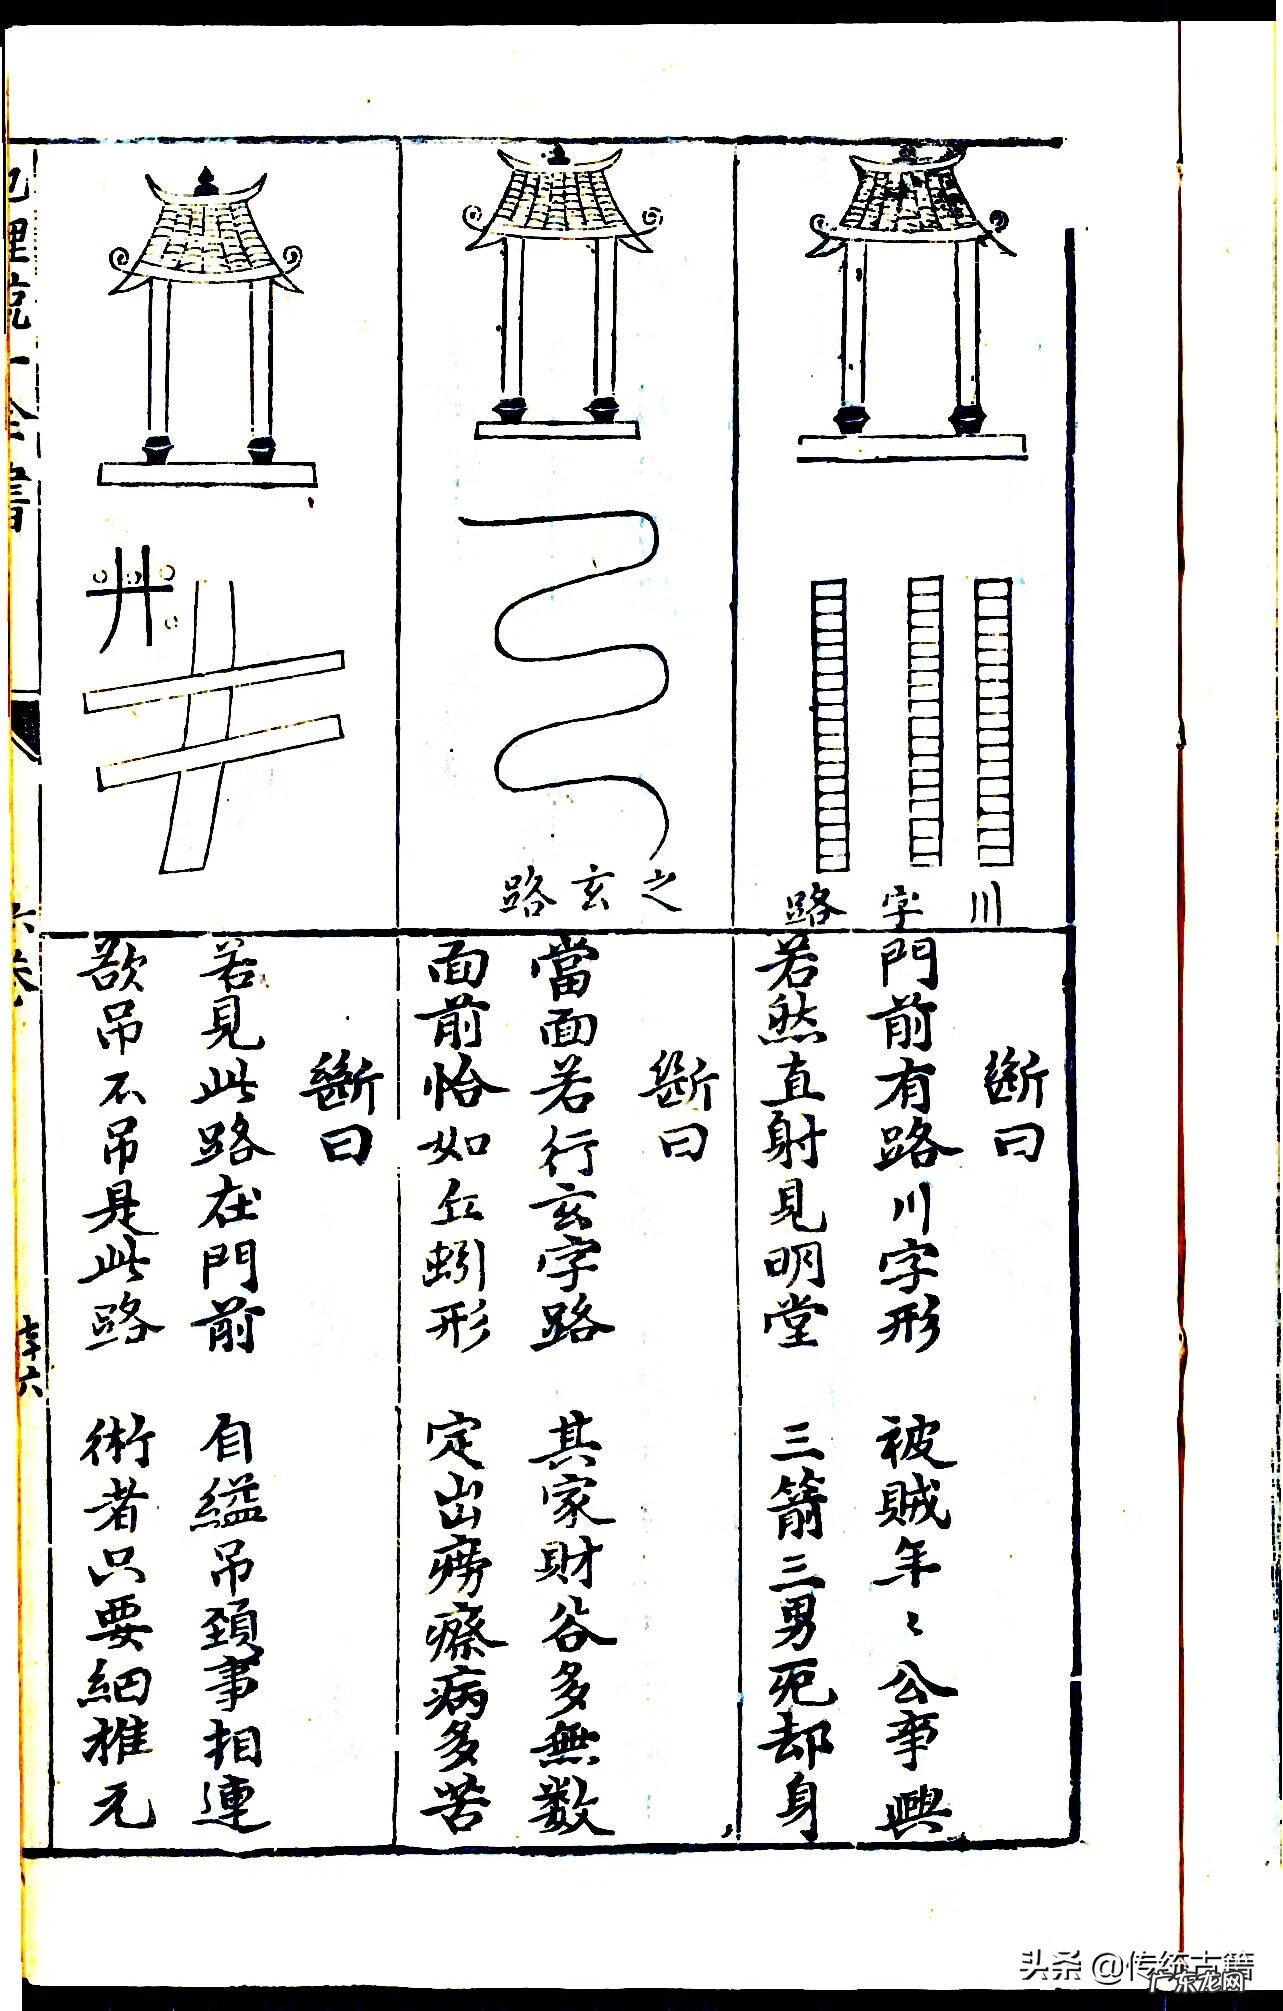 川字路
斷曰
門前有路川字形　被賊年〻公事興
若然直射見明堂　三箭三男死却身
之玄路
斷曰
當面若行玄字路　其家財谷多無数
面前恰如丘蚓形　定出痨瘵病多苦
井
斷曰
若見此路在門前　自縊吊頚事相連
欲吊不吊是此路　術者只要細推元
地理統一全書
六卷
六
头条 @传统古籍
广东龙网